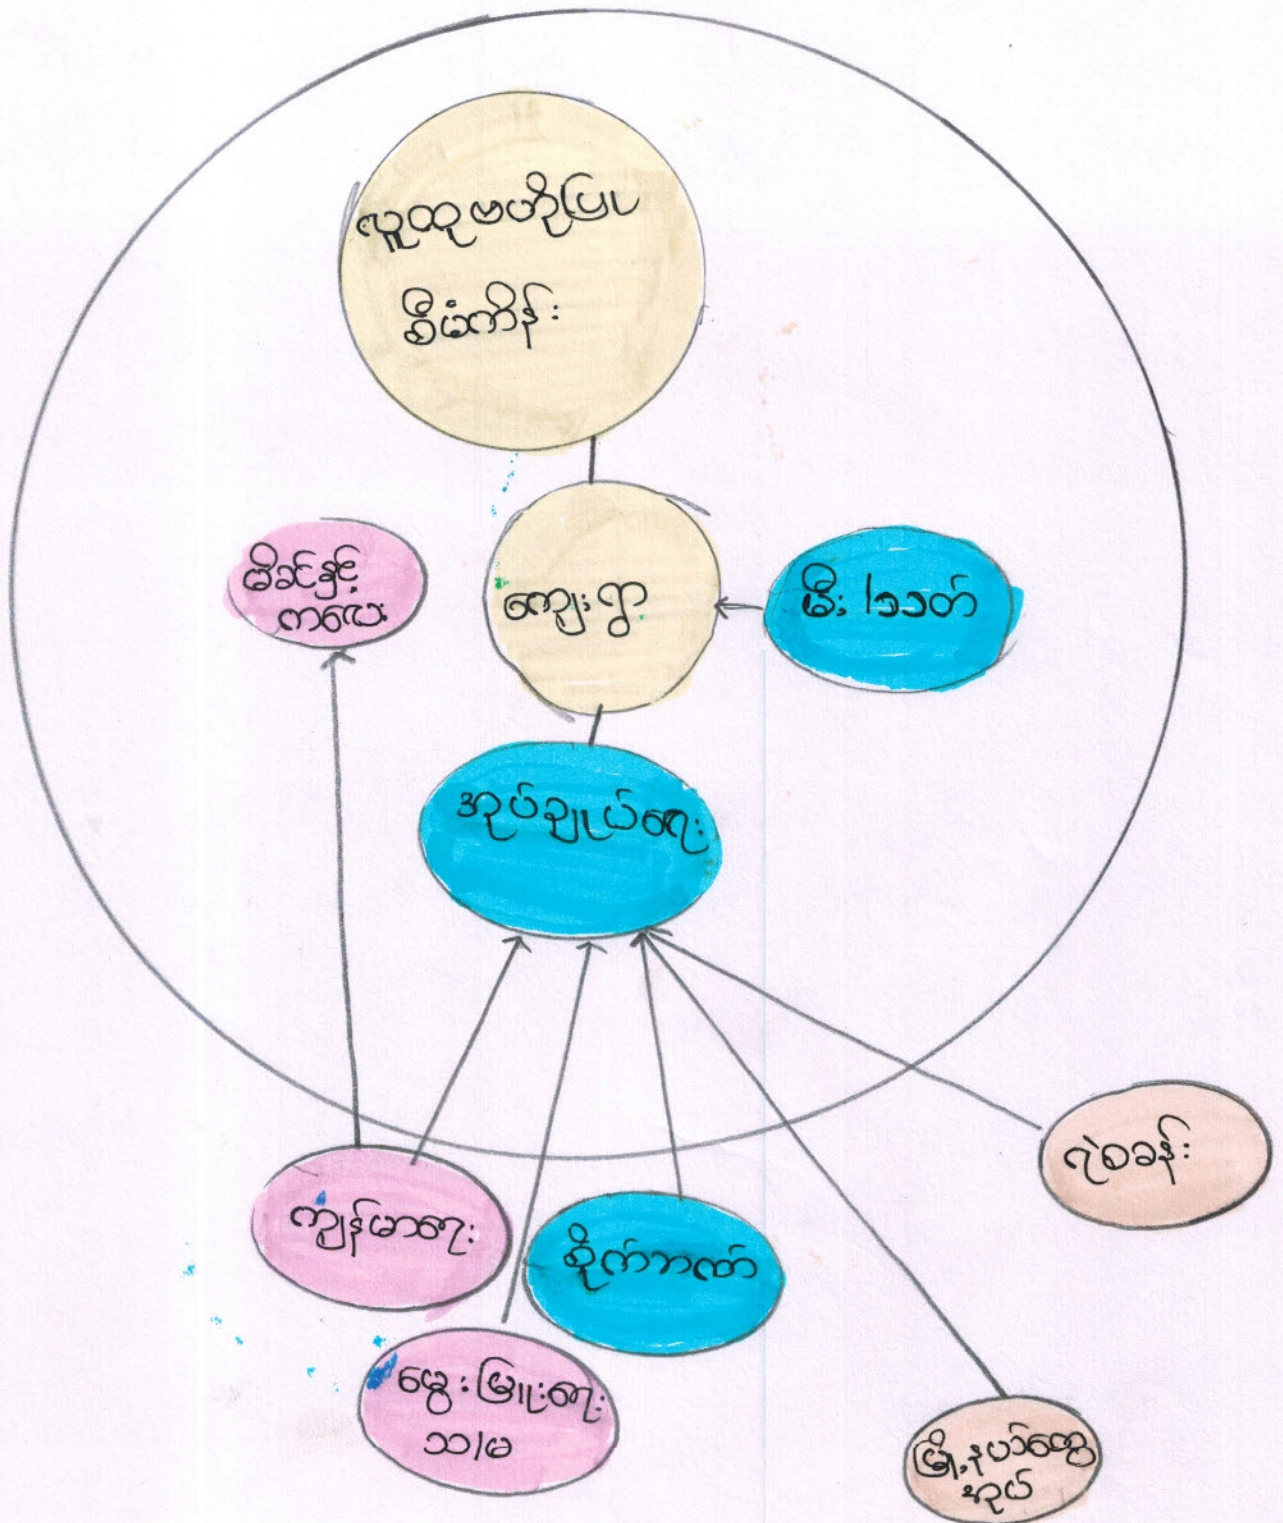 လူထုဗဟိုပြု
စီမံကိန်း
မိခင်နှင့်
ကလေး
ကျေးရွာ
မီး/သတ်
အုပ်ချုပ်ရေး
ရဲစခန်း
ကျန်မာရေး
စိုက်ဘဏ်
မွေးမြူးရေး
သ/မ
မြို့နယ်ထွေ
အုပ်